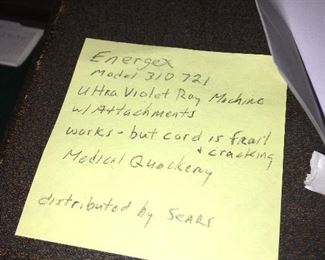 Energex
Model 310 721
Ultra Violet Ray Machine
w/ Attachments
works - but cord is frail
+ cracking
Medical Quackery
distributed by Sears